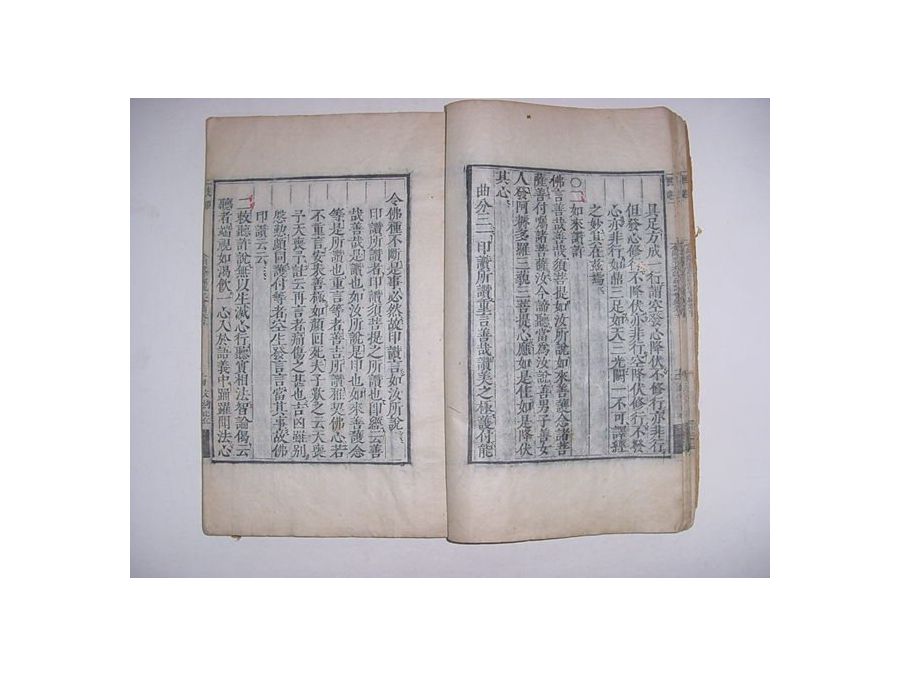 具足方成一行謂突發心降伏不修行亦非行
但發心修行不降伏亦非行空降伏修行不發
心亦非行如鼎三足如天三光闕一不可譯經
之妙其在茲焉
〇二如來讚許
佛言善哉善哉須菩提如汝所說如來善護念諸菩
薩善付囑諸菩薩汝今諦聽當為汝說善男子善女
人發阿耨多羅三藐三菩提心應如是住如是降伏
其心
曲分三一印讚所讚重言善哉讚美之極護付能
令佛種不斷是事必然故印讚言如汝所說
印讚所讚者印讚須菩提之所讚也即經云善
哉善哉是讚也如汝所說是印也如來善護念
等是所讚也重言等者善吉所讚雅契佛心若
不重言安來善極如顏回死夫子歎之云天喪
子天喪予註云再言者痛傷之甚也吉凶雖別
慇懃願同護付等者空生發言言當其事故佛
印讚云云
二敕聽許說無以生滅心行聽實相法智論偈云
聽者端視如渴飲一心入於語義中踊躍聞法心